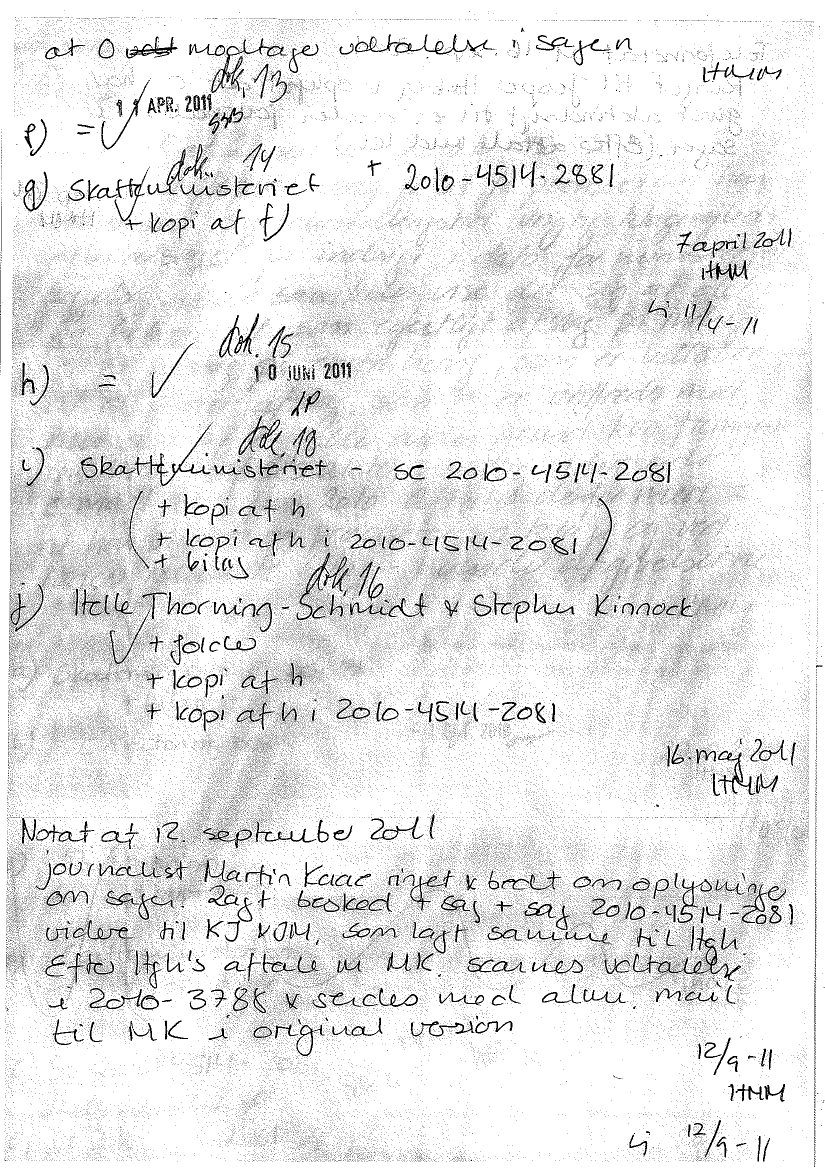 at 0 modtage udtalelse i sagen
HMM
dok. 13
11 APR. 2011
f) = ✓
dok. 14
g) Skatteministeriet + 2010-4514-2881
+ kopi af f)
7 april 2011
HMM
11/4-11
dok. 15
h) = ✓
10 JUNI 2011
LP
dok. 18
i) Skatteministeriet - sc 2010-4514-2081
(+ kopi af h
+ kopi af h i 2010-4514-2081)
+ bilag
dok. 16
j) Helle Thorning-Schmidt & Stephen Kinnock
✓ + folder
+ kopi af h
+ kopi af h i 2010-4514-2081
16. maj 2011
HMM
Notat af 12. september 2011
journalist Martin Kaae ringet & bedt om oplysninge
om sagen. Lagt besked + sag + sag 2010-4514-2081
videre til KJ & JM, som lagt samme til Hgh
Efter Hgh's aftale m MK, scannes udtalelse
i 2010-3788 & sendes med alm. mail
til MK i original version
12/9-11
HMM
12/9-11